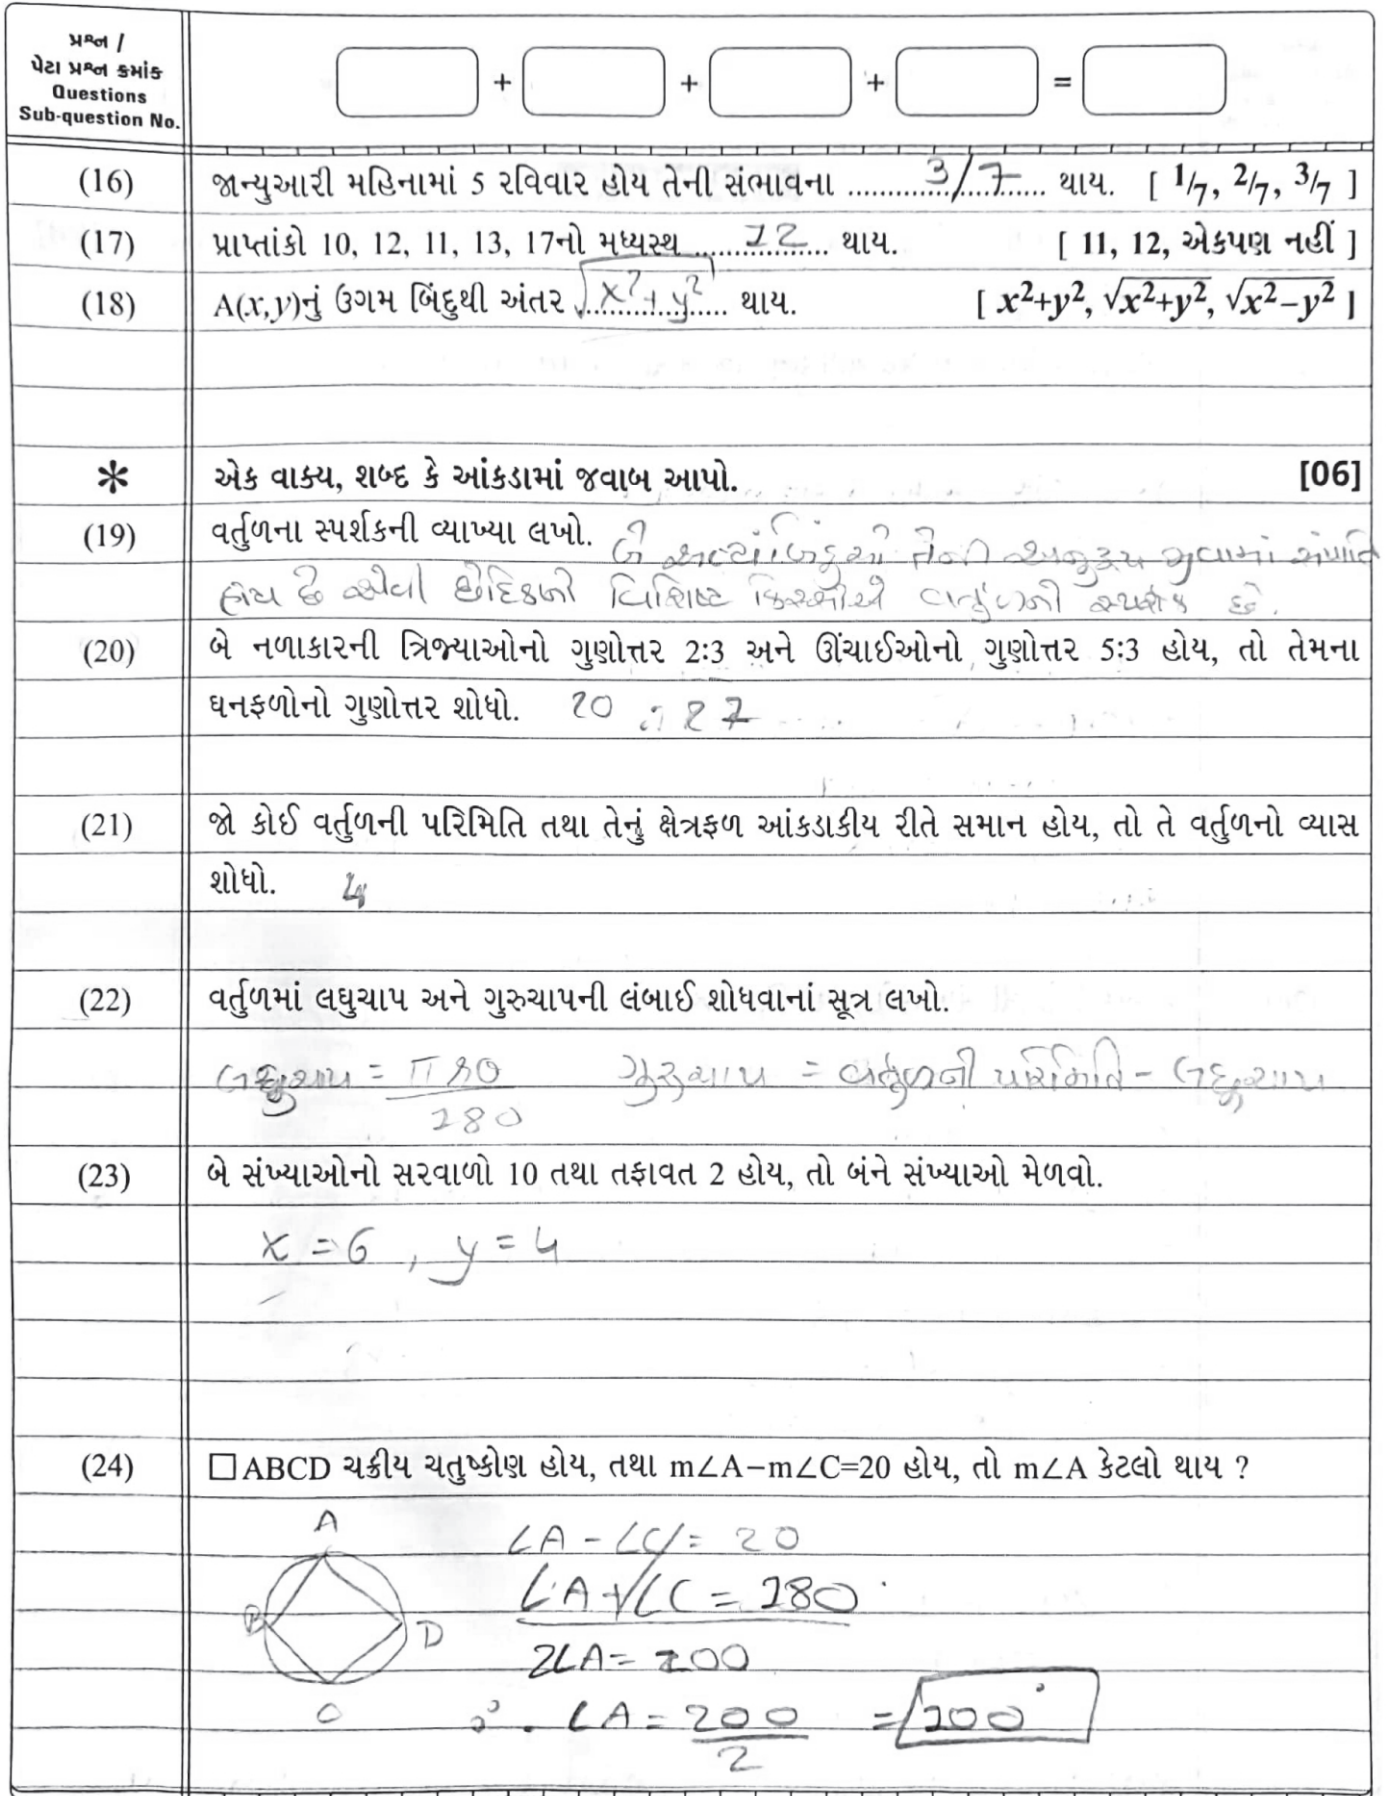 પ્રશ્ન /
પેટા પ્રશ્ન ક્રમાંક
Questions
Sub-question No.
+ + + =
(16) જાન્યુઆરી મહિનામાં 5 રવિવાર હોય તેની સંભાવના ......3/7...... થાય. [ 1/7, 2/7, 3/7 ]
(17) પ્રાપ્તાંકો 10, 12, 11, 13, 17નો મધ્યસ્થ ......12...... થાય. [ 11, 12, એકપણ નહીં ]
(18) A(x,y)નું ઉગમ બિંદુથી અંતર √x²+y² થાય. [ x²+y², √x²+y², √x²−y² ]
* એક વાક્ય, શબ્દ કે આંકડામાં જવાબ આપો. [06]
(19) વર્તુળના સ્પર્શકની વ્યાખ્યા લખો. બે અંત્યબિંદુઓ તેની અનુરૂપ જીવામાં સંપાતિ
હોય છે એવી છેદિકાનો વિશિષ્ટ કિસ્સોએ વર્તુળનો સ્પર્શક છે.
(20) બે નળાકારની ત્રિજ્યાઓનો ગુણોત્તર 2:3 અને ઊંચાઈઓનો ગુણોત્તર 5:3 હોય, તો તેમના
ઘનફળોનો ગુણોત્તર શોધો. 20 : 27
(21) જો કોઈ વર્તુળની પરિમિતિ તથા તેનું ક્ષેત્રફળ આંકડાકીય રીતે સમાન હોય, તો તે વર્તુળનો વ્યાસ
શોધો. 4
(22) વર્તુળમાં લઘુચાપ અને ગુરુચાપની લંબાઈ શોધવાનાં સૂત્ર લખો.
લઘુચાપ = πrθ ગુરુચાપ = વર્તુળની પરિમિતિ - લઘુચાપ
180
(23) બે સંખ્યાઓનો સરવાળો 10 તથા તફાવત 2 હોય, તો બંને સંખ્યાઓ મેળવો.
x = 6 , y = 4
(24) □ABCD ચક્રીય ચતુષ્કોણ હોય, તથા m∠A−m∠C=20 હોય, તો m∠A કેટલો થાય ?
A
∠A - ∠C = 20
∠A + ∠C = 180
B D
2∠A = 200
C
∴ ∠A = 200 = 100°
2